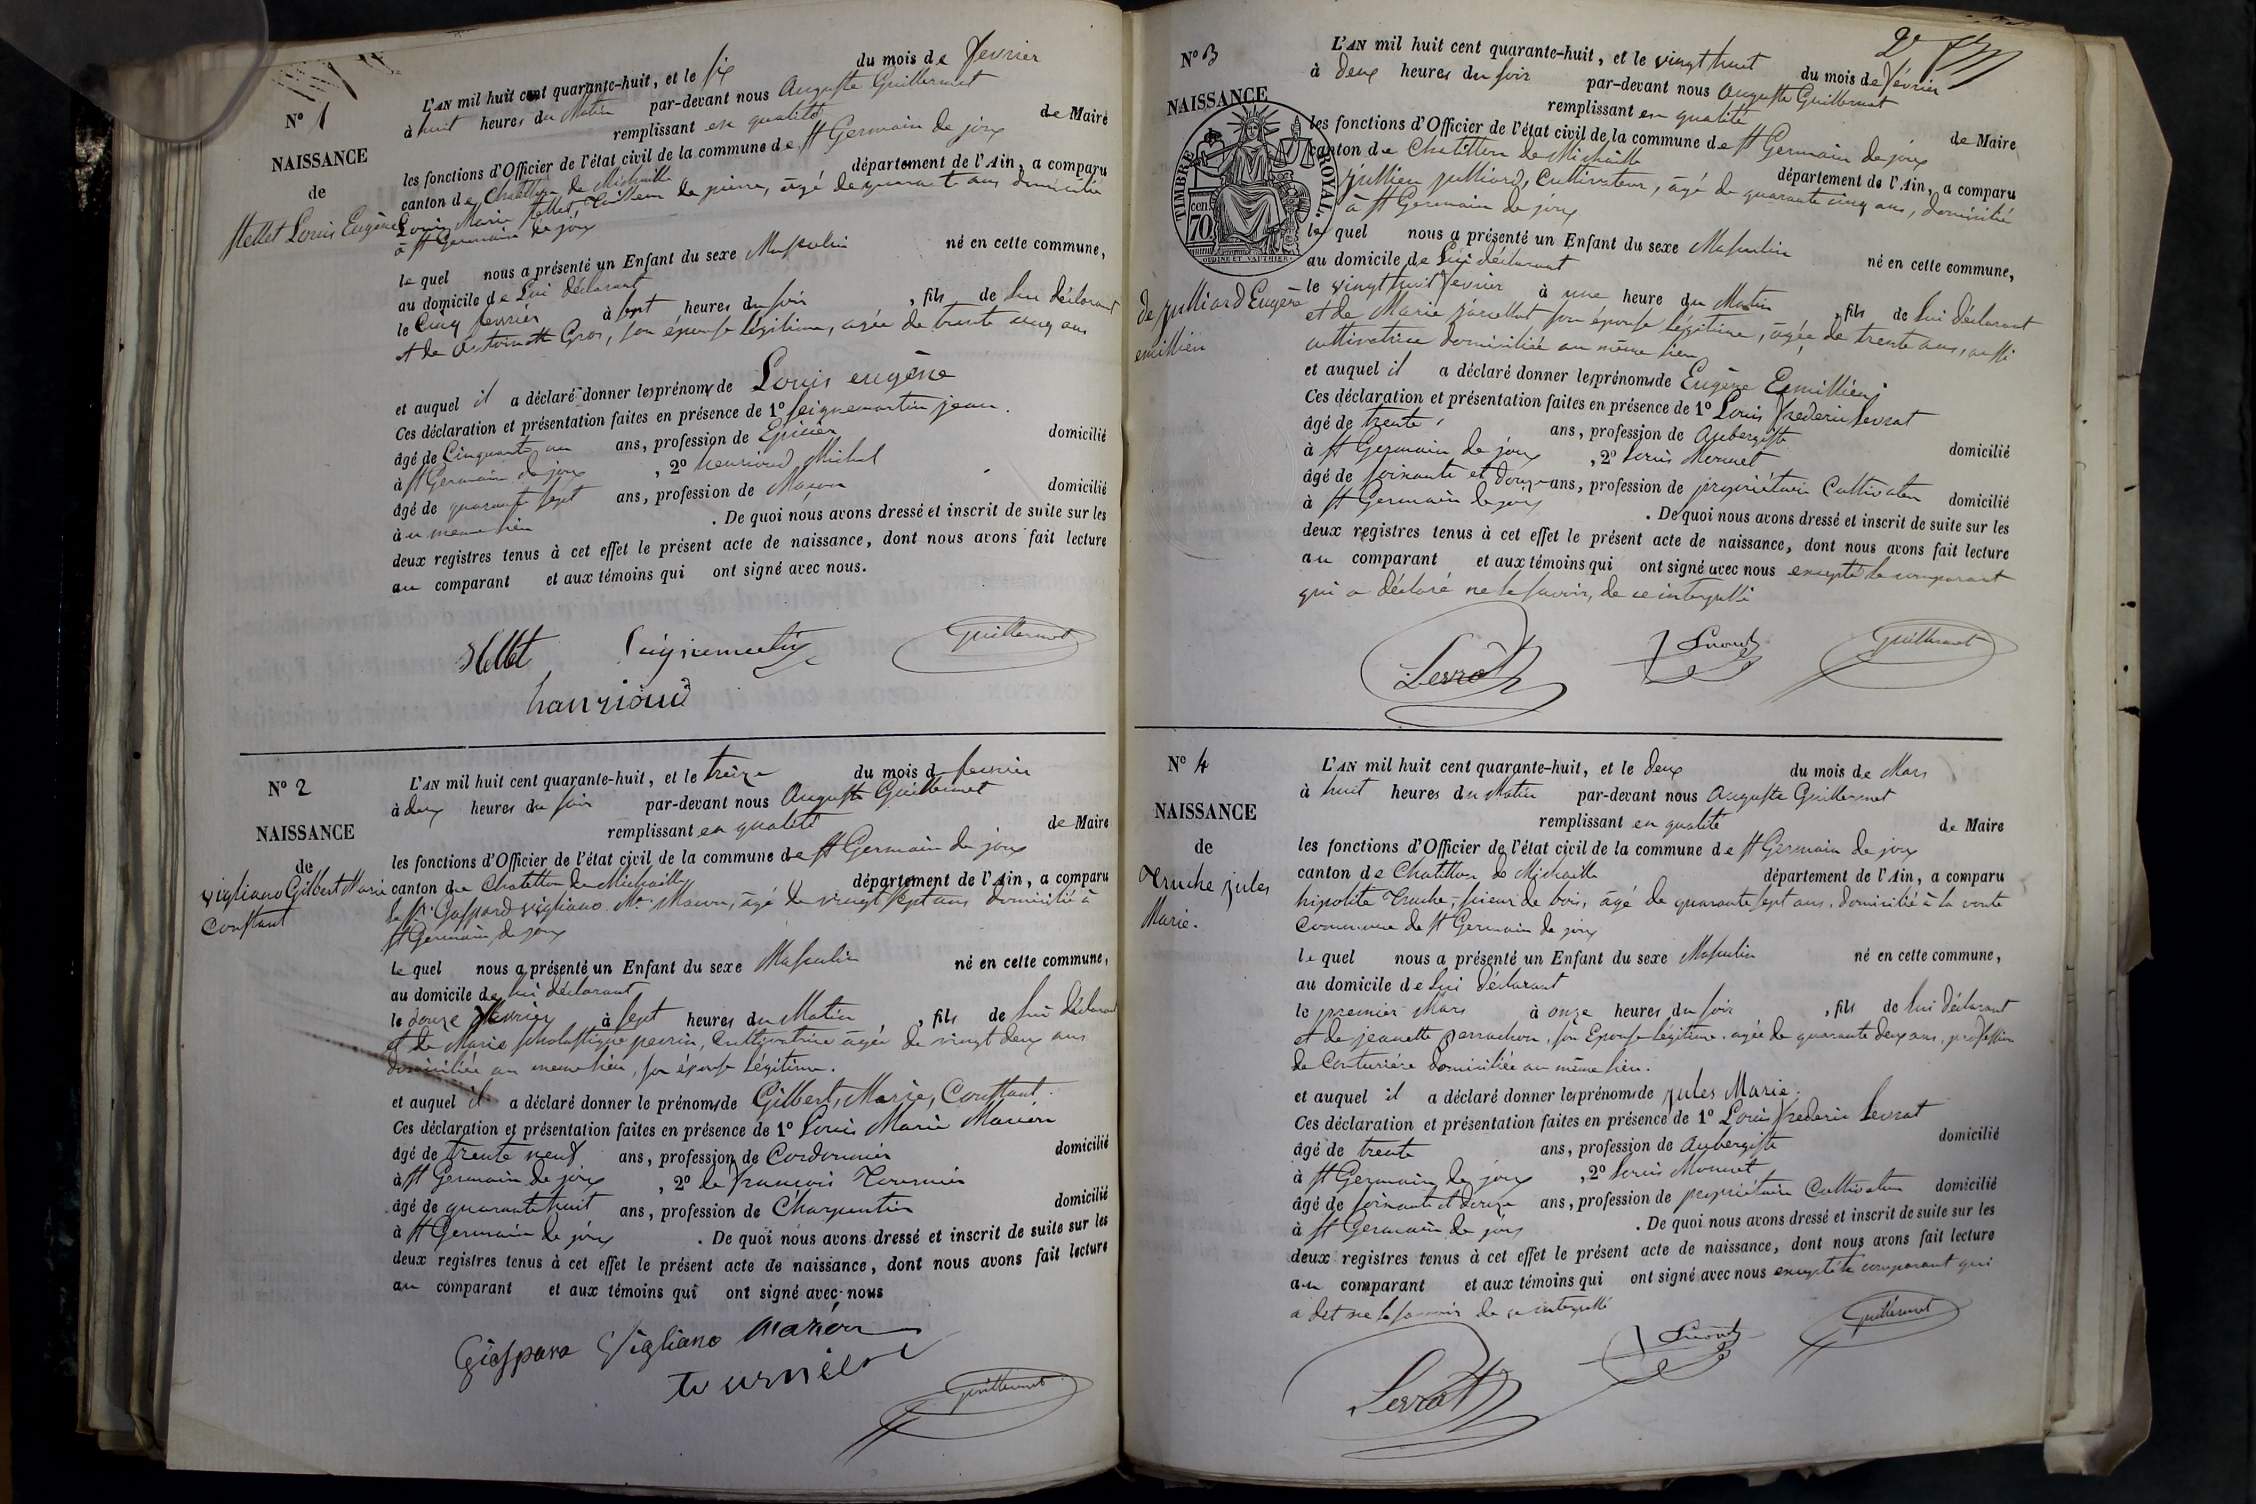 N° 1
NAISSANCE
de
Mellet Louis Eugène
L'AN mil huit cent quarante-huit, et le six du mois de fevrier
à huit heures du Matin par-devant nous Auguste Guillermet
remplissant en qualité de Maire
les fonctions d'Officier de l'état civil de la commune de St Germain de joux
canton de Chatillon de Michaille département de l'Ain, a comparu
Louis Marie Mellet tailleur de pierre, âgé de quarante ans domicilié
à St Germain de joux
le quel nous a présenté un Enfant du sexe Masculin né en cette commune,
au domicile de Lui déclarant
le Cinq fevrier à sept heures du soir, fils de lui déclarant
et de Antoinette Gros, son épouse légitime, agée de trente cinq ans
et auquel il a déclaré donner les prénoms de Louis eugène
Ces déclaration et présentation faites en présence de 1° Seignemartin jean.
âgé de Cinquante un ans, profession de Epicier domicilié
à St Germain de joux, 2° henrioud Michel
âgé de quarante sept ans, profession de Maçon domicilié
à u meme lieu. De quoi nous avons dressé et inscrit de suite sur les
deux registres tenus à cet effet le présent acte de naissance, dont nous avons fait lecture
au comparant et aux témoins qui ont signé avec nous.
Mellet Seignemartin Guillermet
hanrioud
N° 2
NAISSANCE
de
Vigliano Gilbert Marie
Constant
L'AN mil huit cent quarante-huit, et le treize du mois de fevrier
à deux heures du soir par-devant nous Auguste Guillermet
remplissant en qualité de Maire
les fonctions d'Officier de l'état civil de la commune de St Germain de joux
canton de Chatillon de Michaille département de l'Ain, a comparu
le Sr Gaspard Vigliano Me Maçon, âgé de vingt sept ans domicilié à
St Germain de joux
le quel nous a présenté un Enfant du sexe Masculin né en cette commune,
au domicile de lui déclarant
le douze fevrier à sept heures du Matin, fils de lui déclarant
et de Marie scholastique perrin, Cultivatrice agée de vingt deux ans
domiciliée au meme lieu, son épouse légitime.
et auquel il a déclaré donner le prénoms de Gilbert, Marie, Constant.
Ces déclaration et présentation faites en présence de 1° Louis Marie
âgé de trente neuf ans, profession de Cordonnier domicilié
à St Germain de joux, 2° de François Tournier
âgé de quarante huit ans, profession de Charpentier domicilié
à St Germain de joux. De quoi nous avons dressé et inscrit de suite sur les
deux registres tenus à cet effet le présent acte de naissance, dont nous avons fait lecture
au comparant et aux témoins qui ont signé avec nous
Vigliano
tournier
Guillermet
N° 3
NAISSANCE
TIMBRE ROYAL.
70 cen.
de julliard Eugène
emillien
L'AN mil huit cent quarante-huit, et le vingt huit du mois de Février
à deux heures du soir par-devant nous Auguste Guillermet
remplissant en qualité de Maire
les fonctions d'Officier de l'état civil de la commune de St Germain de joux
canton de Chatillon de Michaille département de l'Ain, a comparu
jullien julliard, Cultivateur, âgé de quarante cinq ans, domicilié
à St Germain de joux
le quel nous a présenté un Enfant du sexe Masculin né en cette commune,
au domicile de Lui déclarant
le vingt huit fevrier à une heure du Matin, fils de lui déclarant
et de Marie son épouse légitime, âgée de trente ans, aussi
cultivatrice domiciliée au même lieu
et auquel il a déclaré donner les prénoms de Eugène Emillien
Ces déclaration et présentation faites en présence de 1° Louis Frederic Levrat
âgé de trente ans, profession de Aubergiste domicilié
à St Germain de joux, 2° Louis Monnet
âgé de soixante et douze ans, profession de propriétaire Cultivateur domicilié
à St Germain de joux. De quoi nous avons dressé et inscrit de suite sur les
deux registres tenus à cet effet le présent acte de naissance, dont nous avons fait lecture
au comparant et aux témoins qui ont signé avec nous excepté le comparant
qui a déclaré ne le savoir, de ce interpellé
Levrat Guillermet
N° 4
NAISSANCE
de
Truche jules
Marie.
L'AN mil huit cent quarante-huit, et le deux du mois de Mars
à huit heures du Matin par-devant nous Auguste Guillermet
remplissant en qualité de Maire
les fonctions d'Officier de l'état civil de la commune de St Germain de joux
canton de Chatillon de Michaille département de l'Ain, a comparu
hipolite Truche, scieur de bois, âgé de quarante sept ans, domicilié à la voute
Commune de St Germain de joux
le quel nous a présenté un Enfant du sexe Masculin né en cette commune,
au domicile de Lui déclarant
le premier Mars à onze heures du soir, fils de lui déclarant
et de jeanette perrachon, son Epouse légitime, agée de quarante deux ans, profession
de Couturière domiciliée au même lieu.
et auquel il a déclaré donner les prénoms de jules Marie.
Ces déclaration et présentation faites en présence de 1° Louis Frederic Levrat
âgé de trente ans, profession de Aubergiste domicilié
à St Germain de joux, 2° Louis Monnet
âgé de soixante et douze ans, profession de propriétaire Cultivateur domicilié
à St Germain de joux. De quoi nous avons dressé et inscrit de suite sur les
deux registres tenus à cet effet le présent acte de naissance, dont nous avons fait lecture
au comparant et aux témoins qui ont signé avec nous excepté le comparant qui
a dit ne le savoir de ce interpellé
Levrat Guillermet